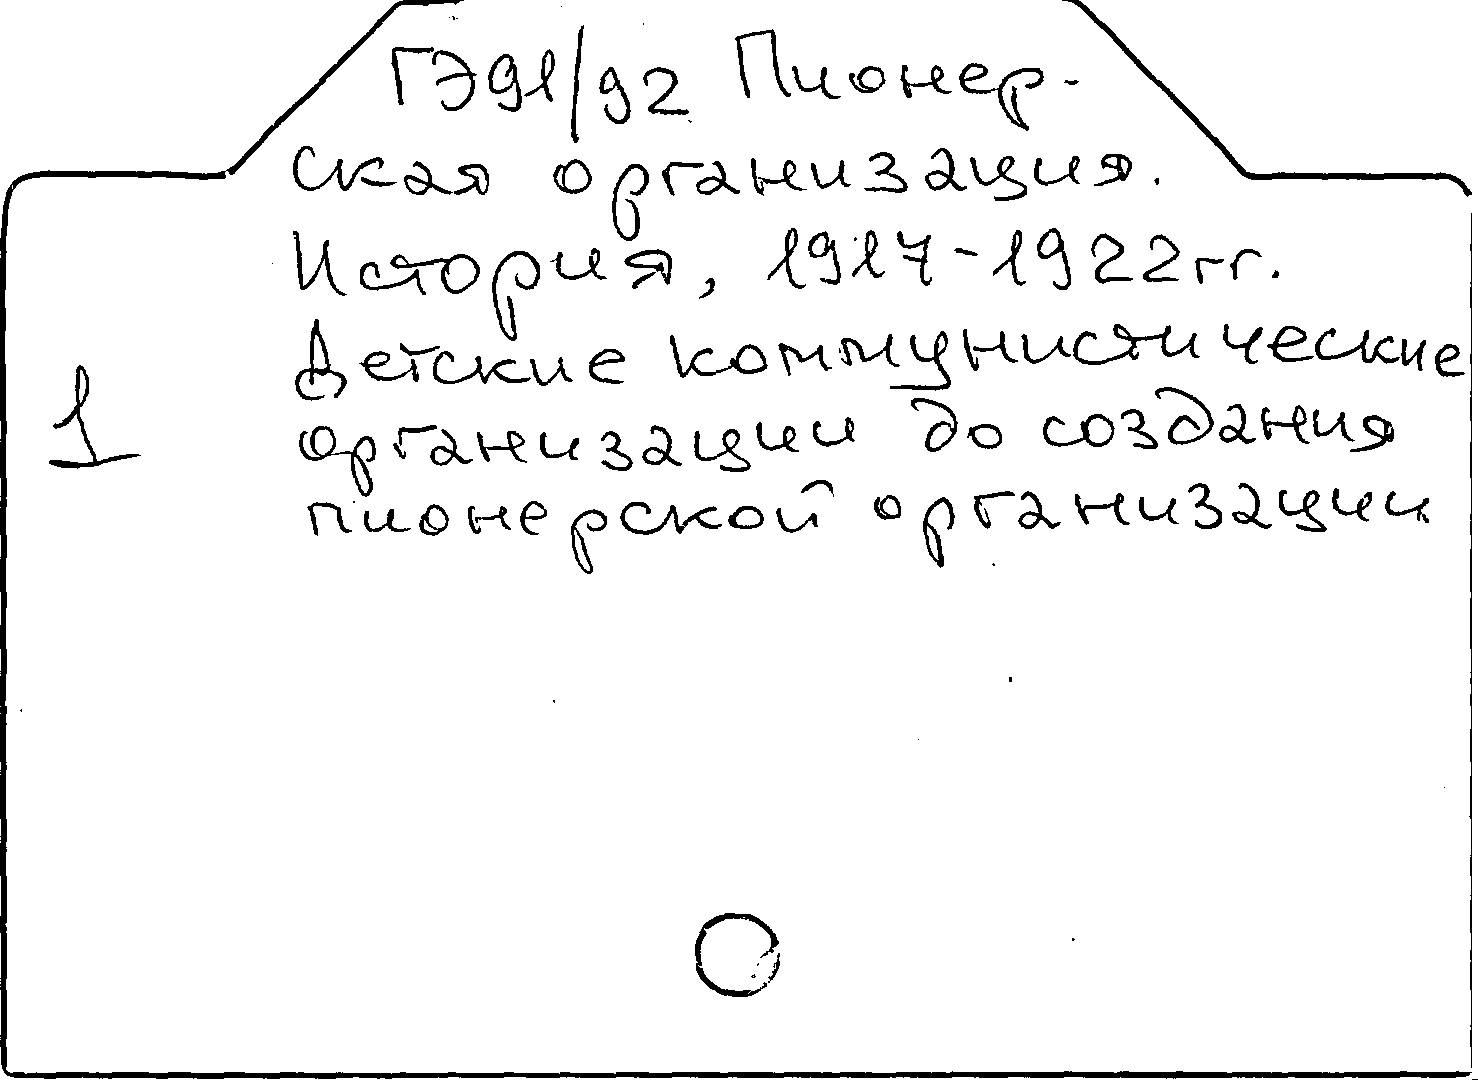 ГЭ91/92 Пионер-
ская организация.
История, 1917-1922гг.
Детские коммунистические
1
организации до создания
пионерской организации